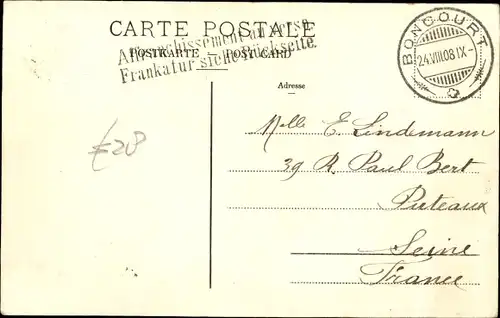 CARTE POSTALE
Affranchissement au verso
POSTKARTE — POST CARD
Frankatur siehe Rückseite.
BONCOURT
24.VIII.08.IX-
Adresse
Mlle E. Lindemann
39 R. Paul Bert
Puteaux
Seine
France
£28